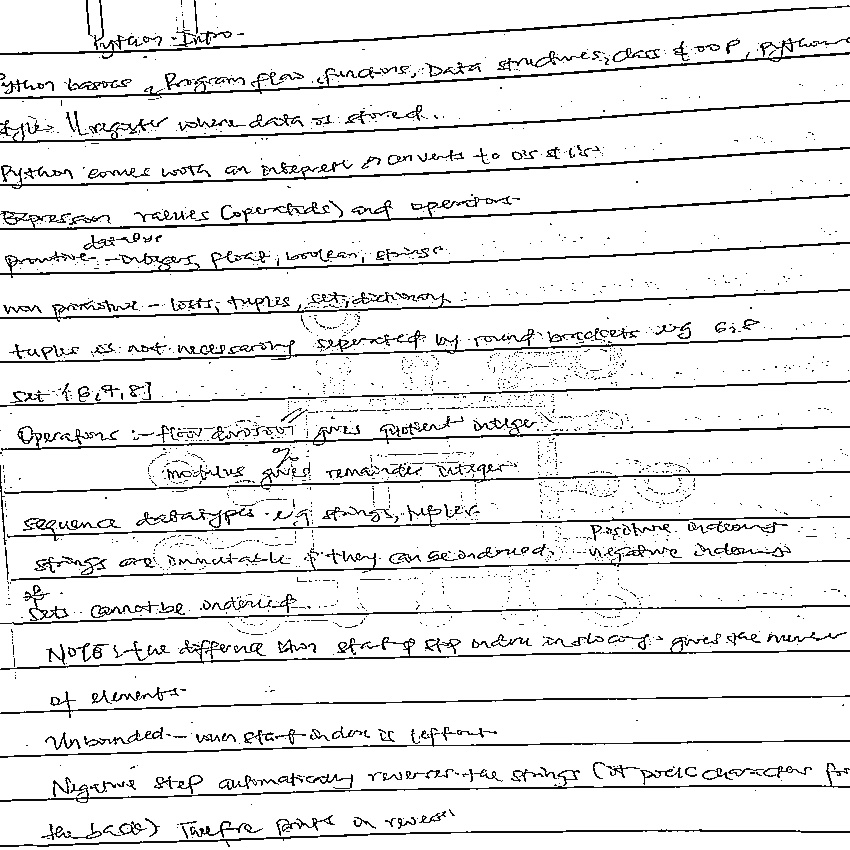 Python Intro
Python basics, Program flow, functions, Data structures, class & OOP, Python
style \\ register where data is stored.
Python comes with an interpreter & converts to
Expression values (operands) and operators
datatype
primitive - integers, float, boolean, strings
non primitive - lists, tuples, set, dictionary
tuples is not necessarily seperated by round brackets eg 6,8
set {6,7,8}
//
Operators :- floor division gives quotient integer
%
modulus gives remainder integer
sequence datatypes eg strings, tuples
positive indexing
strings are immutable & they can be ordered. negative indexing
Sets cannot be ordered.
NOTE :- the difference btwn start & stop index in slicing gives the number
of elements
Unbounded - when start index is left out
Negative step automatically reverses the strings (it picks characters from
the back) Therefore prints in reverse